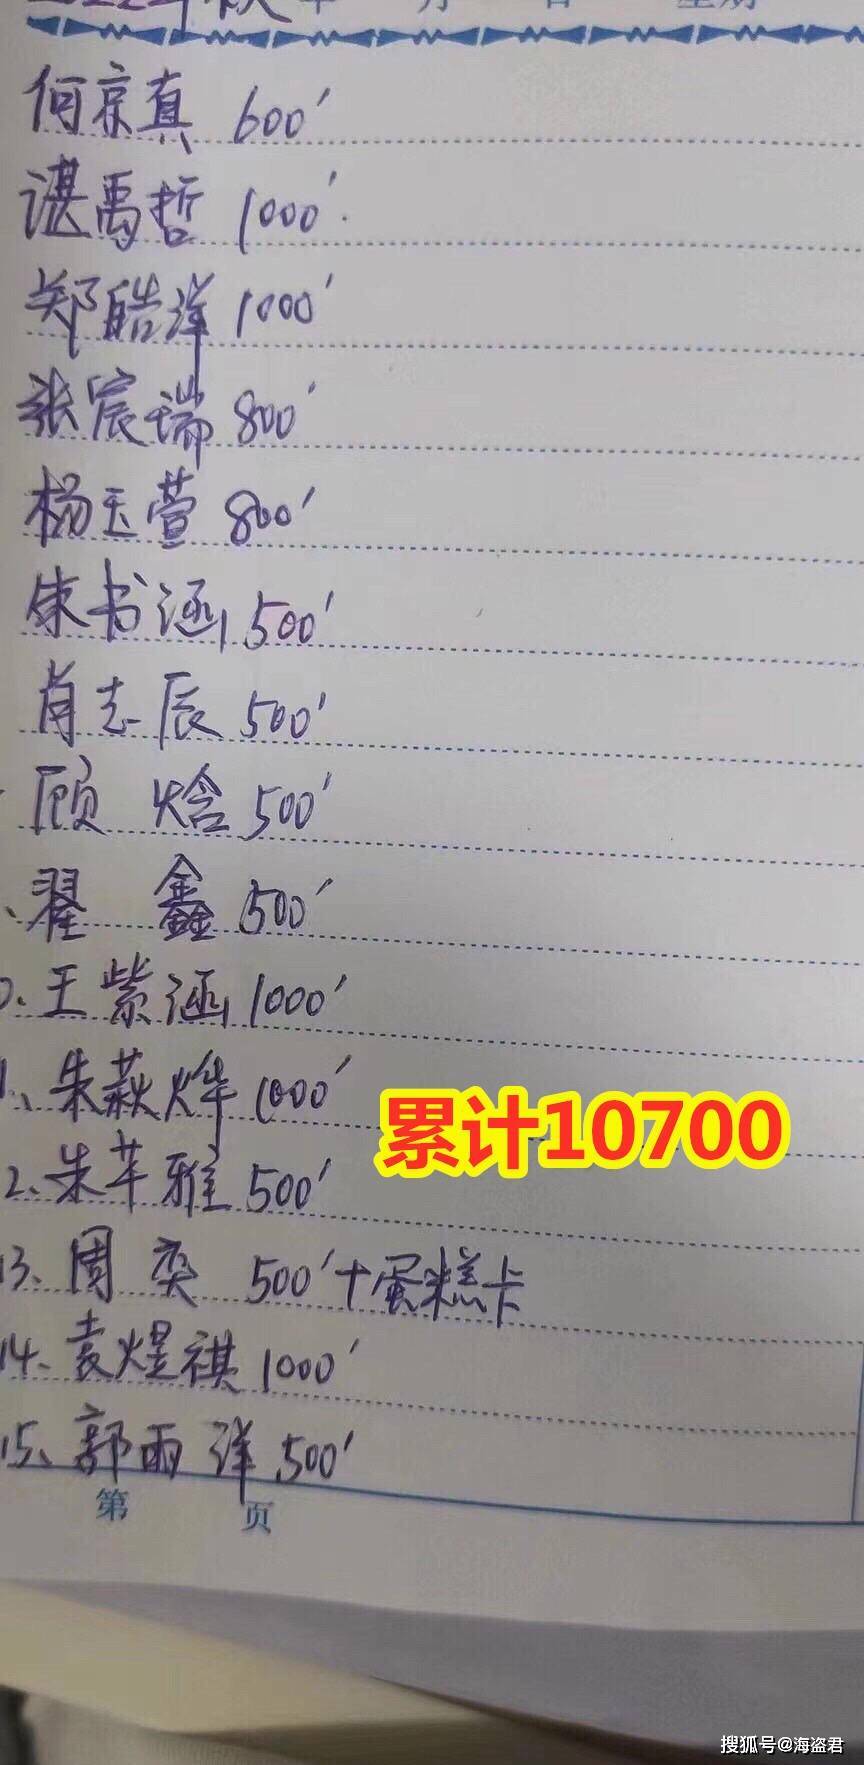 年 月 日 星期
何京真 600
谌禹哲 1000
郑皓洋 1000
张宸瑞 800
杨玉萱 800
朱书涵 500
肖志辰 500
顾 焓 500
翟 鑫 500
0、王紫涵 1000
1、朱菽烨 1000
累计10700
2、朱芊雅 500
13、周奕 500+蛋糕卡
14、袁煜祺 1000
15、郭雨洋 500
第 页
搜狐号@海盗君